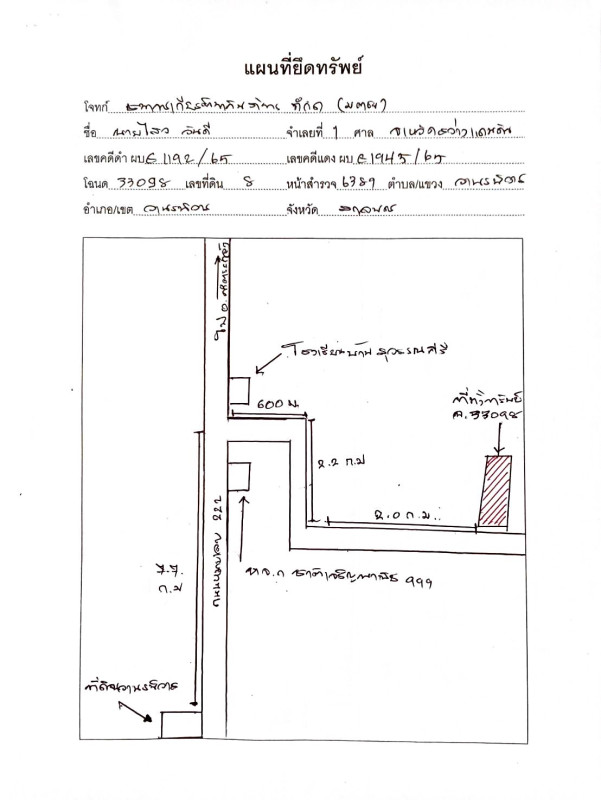 แผนที่ยึดทรัพย์
โจทก์ ธนาคารเกียรตินาคินภัทร จำกัด (มหาชน)
ชื่อ นายไสว วันดี จำเลยที่ 1 ศาล จังหวัดสว่างแดนดิน
เลขคดีดำ ผบE 1192/65 เลขคดีแดง ผบE 1945/65
โฉนด 33098 เลขที่ดิน 8 หน้าสำรวจ 6389 ตำบล/แขวง วานรนิวาส
อำเภอ/เขต วานรนิวาส จังหวัด สกลนคร
ไป อ.
โรงเรียนบ้านสุวรรณคีรี
600 ม.
ที่ตั้งทรัพย์
ฉ.33098
2.2 ก.ม
2.0 ก.ม.
ทางหลวงแผ่นดิน 222
หจก
999
7.7
ก.ม
ที่ดินวานรนิวาส